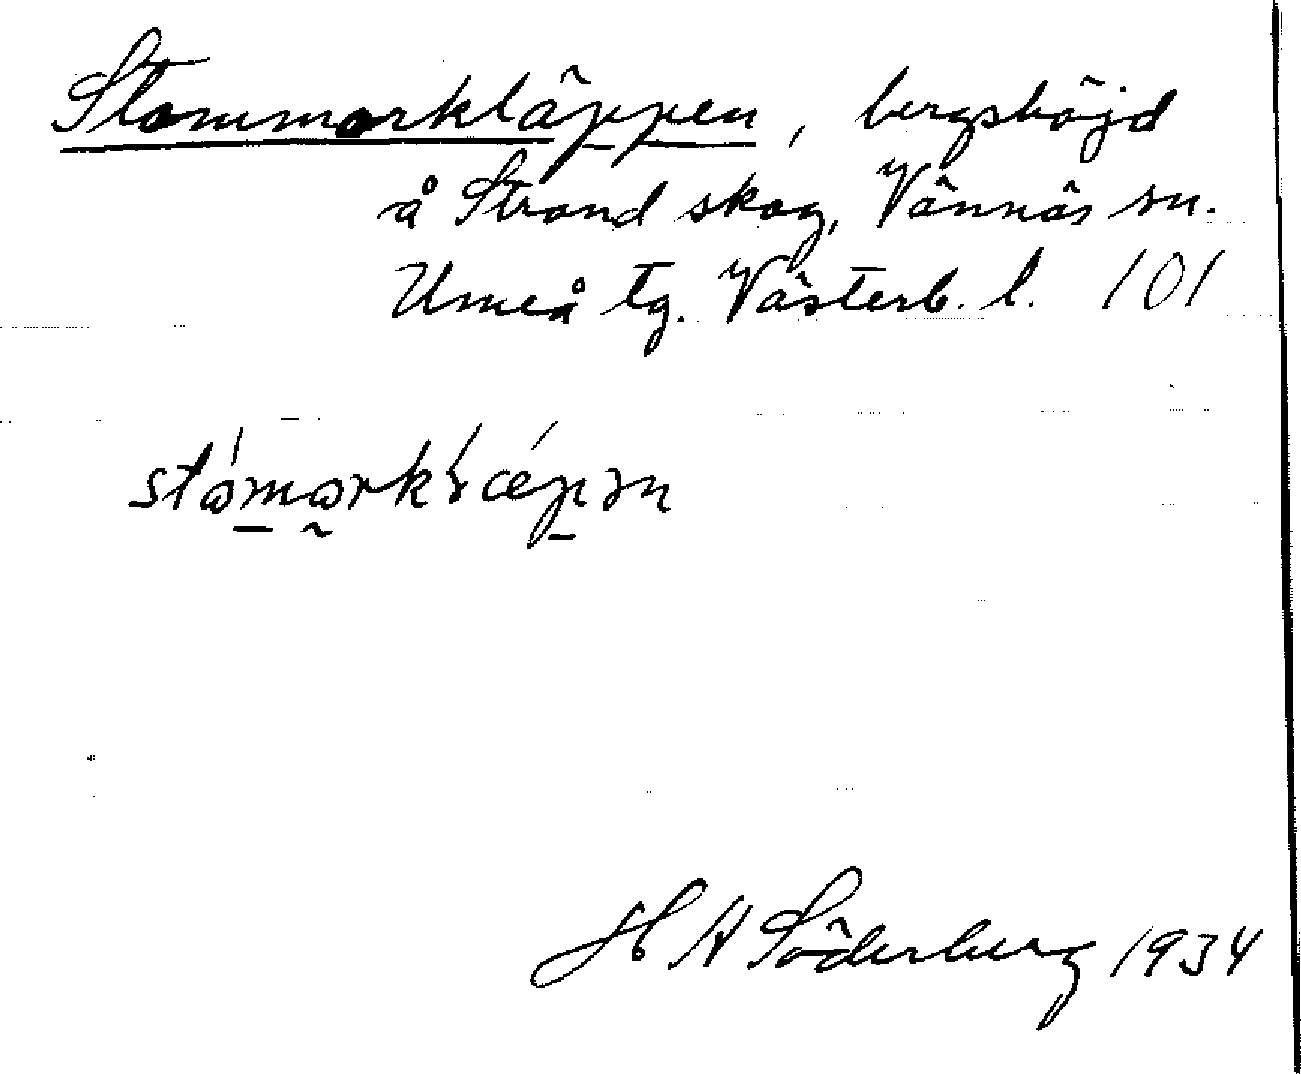 Stommorkläppen, bergshöjd
å Strand skog, Vännäs sn.
Umeå tg. Västerb. l. 101
H A Söderberg 1934